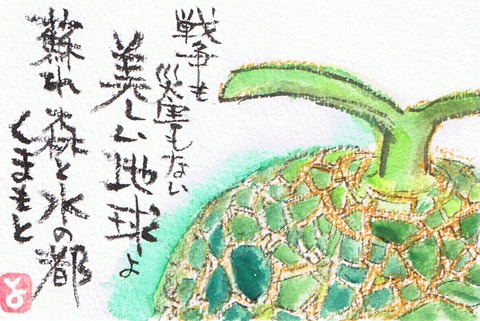 戦争も
災害もない
美しい地球よ
蘇れ森と水の都
くまもと
よ